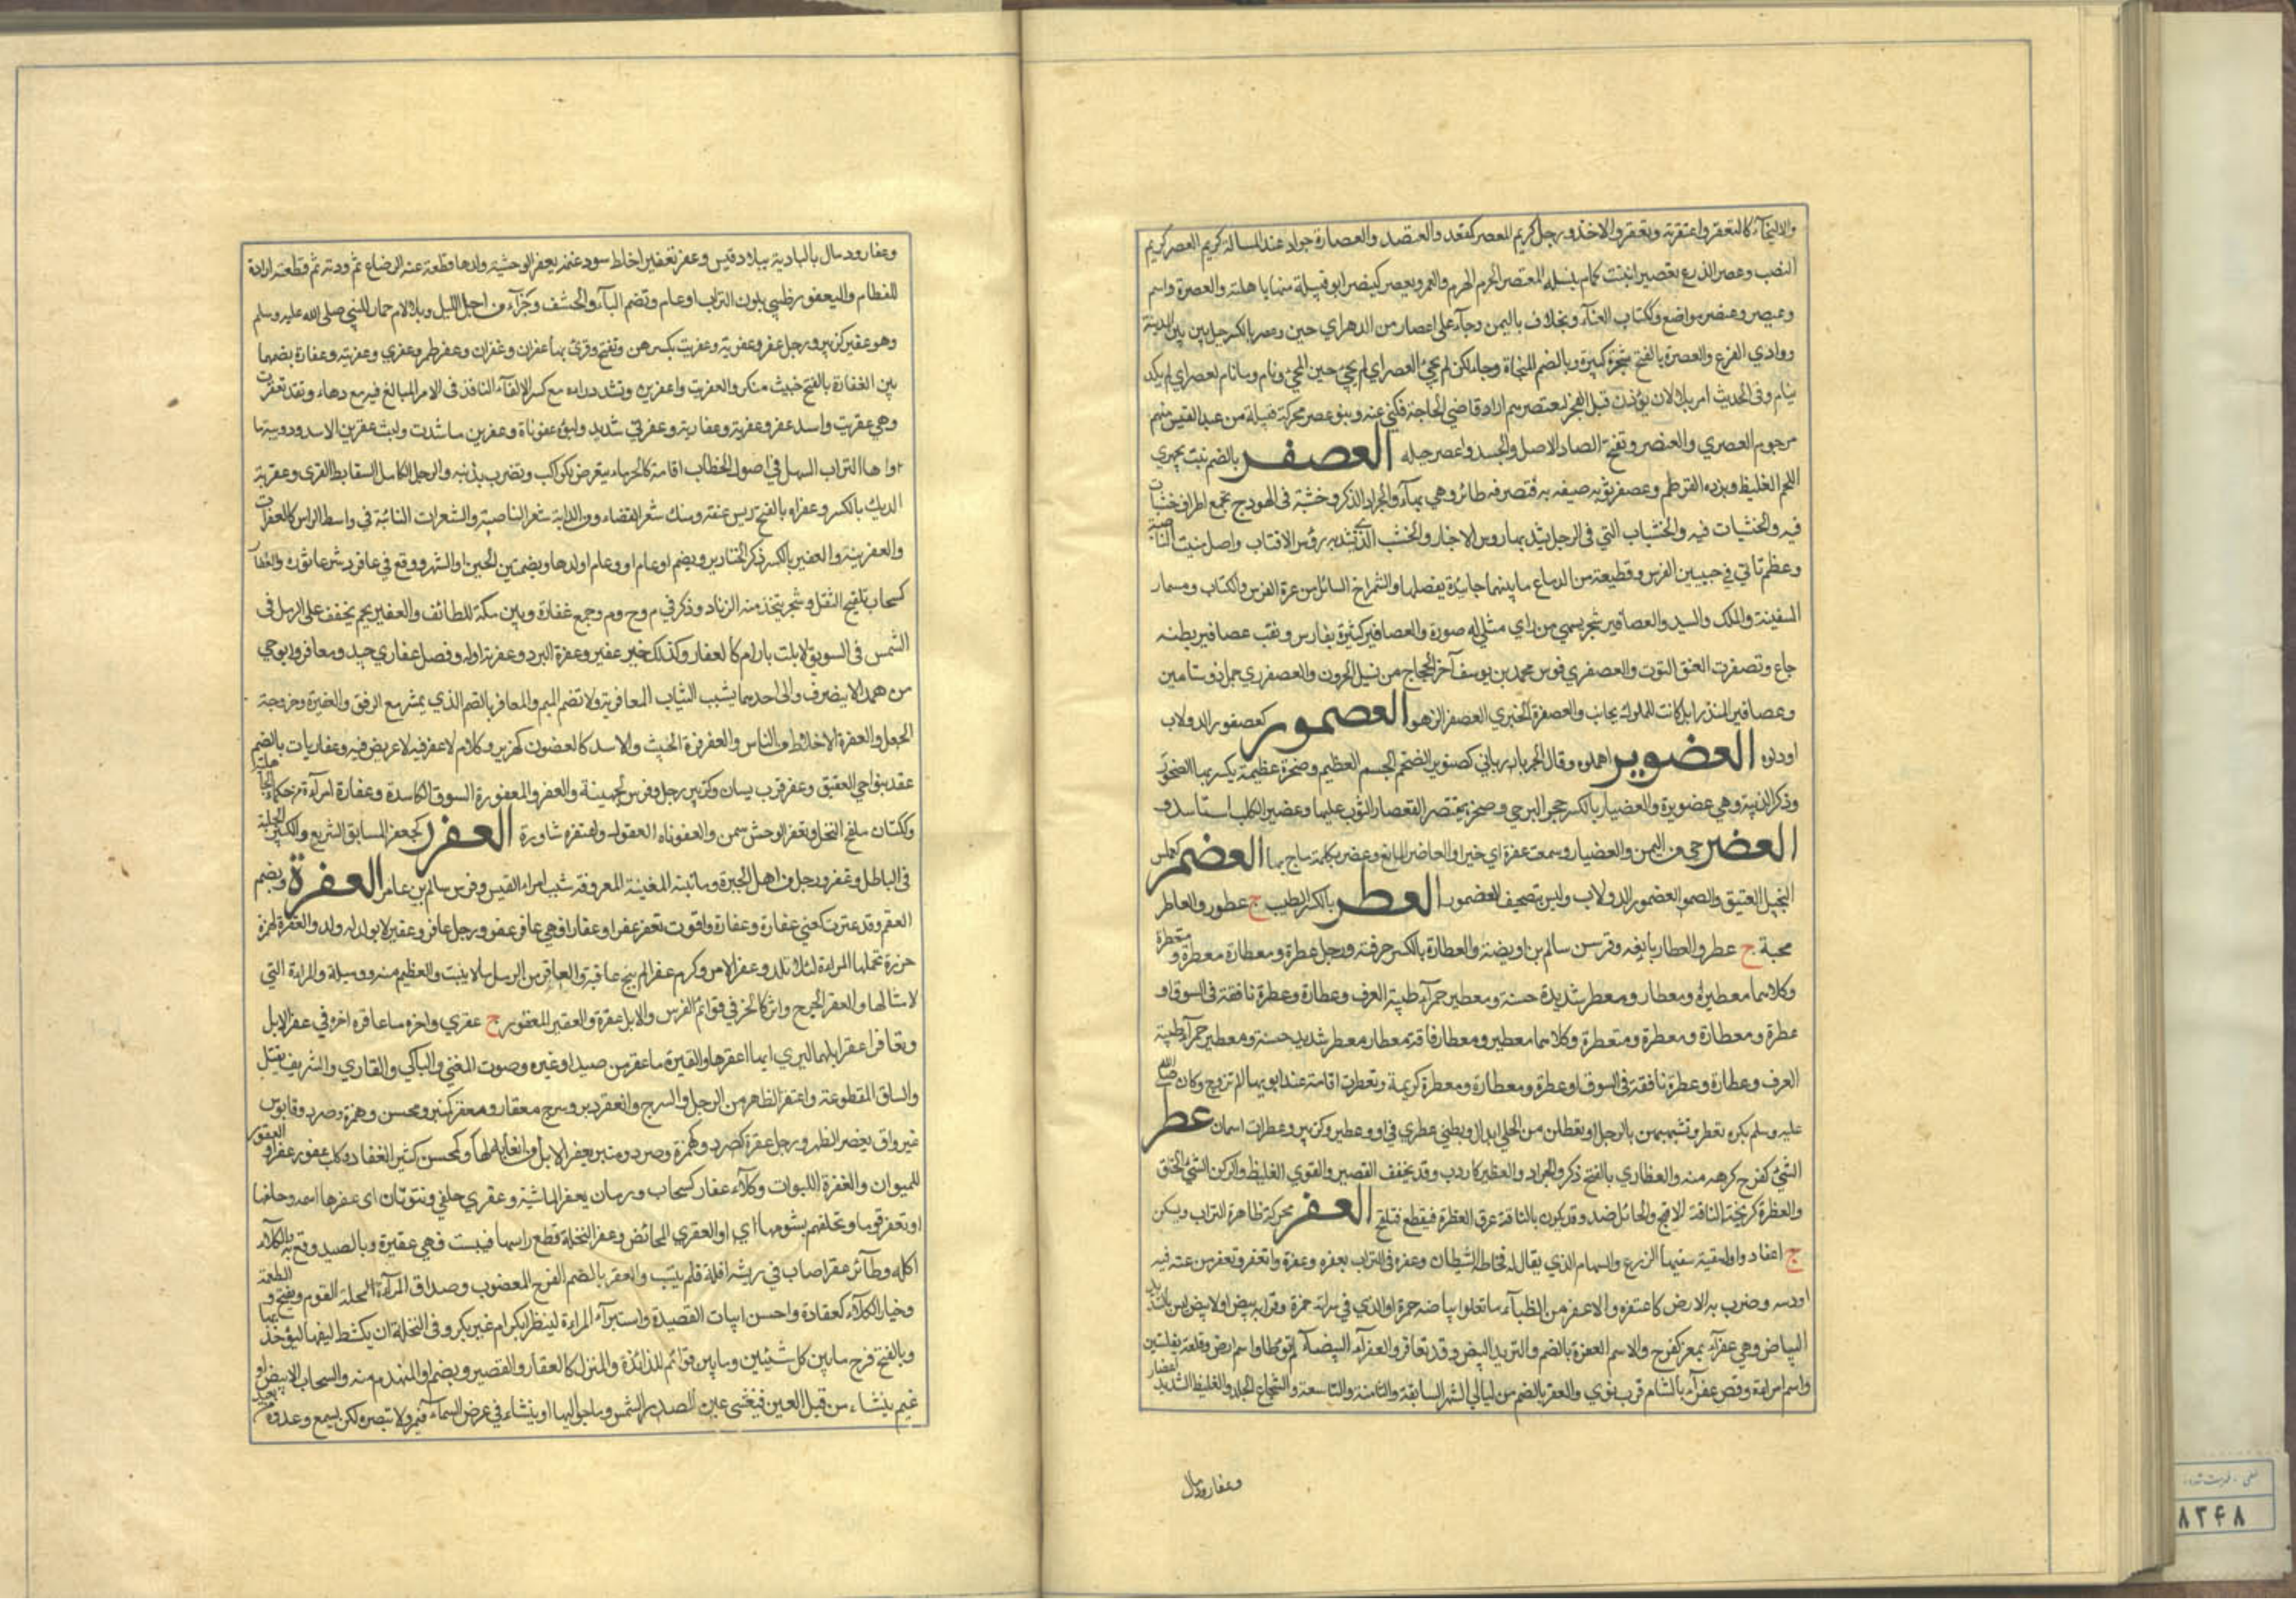 والالتجآء كالتعصر واعتصر به وتعصر والاخذ ورجل كريم المعصر كمقعد والمعتصر والعصارة جواد عند المسالة كريم العصر كريم
النسب وعصر الزرع تعصيرا نبتت اكمام سنبله المعتصر الهرم والعمر ويعصر كينصر ابو قبيلة منها باهلة والعصرة واسم
وعيصر وعنصر مواضع وككتاب الفسآء ومخلاف باليمن وجآء على اعصار من الدهر اي حين وعصر بالكسر جبل بين المدينة
ووادي الفرع والعصرة بالفتح شجرة كبيرة وبالضم المنجاة وجاء لكن لم يجئ لعصر اي لم يجئ حين المجئ ونام وما نام لعصر اي لم يكد
ينام وفي الحديث امر بلالا ان يؤذن قبل الفجر ليعتصر معتصرهم اراد قاضي الحاجة فكنى عنه وبنو عصر محركة قبيلة من عبد القيس منهم
مرجوم العصري والعنصر وتفتح الصاد الاصل والحسب وعصر جبله العصفر بالضم نبت يهري
اللحم الغليظ وبزره القرطم وعصفر ثوبه صبغه به فتعصفر طائر وهي بهآء والجراد الذكر وخشبة في الهودج تجمع اطراف خشبات
فيه والخشبات فيه والخشبات التي في الرحل يشد بها رؤس الاحناء والخشب الذي تشد به رؤس الاقتاب واصل منبت الناصية
وعظم ناتئ في جبين الفرس وقطيعة من الدماغ ما بينهما جليدة يفصلها والشمراخ السائل من غرة الفرس والكتاب ومسمار
السفينة والملك والسيد والعصافير شجر يسمى من راي مثلي له صورة والعصافير كثيرة بفارس ونقب عصافير بطنه
جاع وتعصفرت العنق التوت والعصفري فرس محمد بن يوسف اخى الحجاج من نسل الحرون والعصفري جمل ذو سنامين
وعصافير المنذر ابل كانت للملوك نجائب والعصفرة الخيري العصفر الزهر العصمور كعصفور الدولاب
او دلوه العضوبر اهملوه وقال ابو رباني كصنوبر الضخم الجسم العظيم وصخرة عظيمة يكسر بها الصخور
وذكر الذئبة وهي عضوبرة والعضبار بالكسر حجر الرحى وصخرة يعتصر القصار الثوب عليها وعضبر الكلب استاسد
العضر حي من اليمن والعضيار وسمعت عضرة اي خبرا والعاضر المانع وعضر بكلمة باح بها العضمر كعملس
البخيل العتيق والعضمور الدولاب وليس بتصحيف للعصمور العطر بالكسر الطيب ج عطور والعاطر
محبه ج عطر والعطار بايعه وفرس سالم بن وابصة والعطارة بالكسر حرفته ورجل عطرة ومعطارة معطرة ومتعطرة
وكلاهما معطيرة ومعطار ومعطر شديدة حسنة ومعطير حمرآء طيبة العرف وعطارة وعطرة نافقة في السوق او
عطرة ومعطارة ومعطرة ومتعطرة وكلاهما معطير ومعطار فاقة معطار معطر شديدة حسنة ومعطير حمرآء طيبة
العرف وعطارة وعطرة نافقة في السوق او عطرة ومعطارة ومعطرة كريمة وتعطرت اقامت عند ابويها لم تتزوج وكان صلى الله
عليه وسلم يكره تعطر وتشبههن بالرجال او تعطلن من الحلي ابدال وبطني عطري في ا و و عطير وكزبير وعطرات اسمان عطر
الشئ كفرح كرهه منه والعظاري بالفتح ذكر والجراد والعظير كاردب وقد يخفف القصير والقوي الغليظ والركن الشئ الخلق
والعظرة كزنخة الناقة لاقح والحائل ضد وقد يكون بالناقة عرق العظرة فيقطع فتلقح العفر محركة ظاهرة التراب ويسكن
ج اعفار واول سقية سقيها الزرع والسهام الذي يقال له مخاط الشيطان وعفره في التراب يعفره وعفرة وانعفر وتعفر مرغه فيه
او دسه وضرب به الارض كاعتفره والاعفر من الظبآء ما تعلو بياضه حمرة او الذي في سراته حمرة واقرابه بيض او الابيض ليس بالشديد
البياض وهي عفرآء بمعز كفرح والاسم العفرة بالضم والثريد المبيض وقد تعافر والعفرآء البيضآء لم توطا واسم ارض وقلعة بفلسطين
واسم امراة وقصر عفرآء بالشام قرب نوى والعفر بالضم من ليالي الشهر السابعة والثامنة والتاسعة والشجاع الجلد والغليظ الشديد اعفار
وعفار ورمال
وعفار ورمال بالبادية ببلاد قيس وعفر تعفيرا خلط سود غنمه بعفر الوحشية ولدها قطعت عنه الرضاع ثم ودته ثم قطعته ارادة
للفطام واليعفور ظبي بلون التراب او عام وتضم اليآء والخشف وجزء من اجزآء الليل وبلا لام حمار للنبي صلى الله عليه وسلم
وهو عفير كزبير ورجل عفر وعفرية وعفريت بكسرهن وتفتح وقرئ بها عفران وعفران وعفر طمر وعفري وعفرنية وعفارة بضمها
بين العفارة بالفتح خبيث منكر والعفريت واعفرين وتشدد راءه مع كسر الالفآء النافذ في الامر المبالغ فيه مع دهاء وقد تعفرت
وهي عفريت واسد عفر وعفرية وعفارية وعفرني شديد ولبوة عفرناة وعفرين ماسدة وليث عفرين الاسد ودويبة ما
واها التراب السهل في اصول الحيطان اقامة كالحرباء يتعرض للراكب وتضرب بذنبه والرجل الكامل السقاط القرى وعفرية
الديك بالكسر وعفراه بالفتح ريش عنقه ومنك شعر القفاء ومن الدابة شعر الناصية والشعرات النابتة في وسط الراس كالعفرات
والعفرنية والعفر بالكسر ذكر الخنازير ويضم او عام او عام اولدها وبضمتين الحين او الشهر ووقع في عافور شر عاثوره والعفار
كسحاب تلقيح النخل وشجر يتخذ منه الزناد وذكر في م وح وم وجمع عفارة وبين مكة للطائف والعفير لحم يجفف على الرمل في
الشمس في السويق لا يلت بادام كالعفار وكذلك خبز عفير وعفرة البرد وعفرية اوله وفصل عفاري جيد ومعافر د وابو حي
من همدان لا ينصرف والى احدهما ينسب الثياب المعافرية ولا تضم الميم والمعافر بالضم الذي يمشي مع الرفق والعفيرة دحروجة
الجعل والعفرة الاخلاط من الناس والعفرفرة الخبث والاسد كالعضون كهزبر وكلام لا عفر فيه لا عريص فيه وعفاريات بالضم
عقد بنواحي العقيق وعفر قرب بيسان وكزبير رجل وفرس لجهينة والعفر والمعفورة السوق الكاسدة وعفارة امراة
وككتان ملقح النخل وتعفر الوحش سمن والعفرناه العقول واعتفره شاوره العفزر كجعفر السابق السريع والكثير الجلبة
في الباطل وعفزر ورجل من اهل الحيرة ومابنته المغنية المعروفة شبب امراء القيس وفرس سالم بن عامر العقرة ويضم
العقم وقد عقرت كعني عقارة وعقارة واقوت تعقر عقرا وعقارا فهي عاقر عقر ورجل عاقر وعقير لا يولد له ولد والعقرة كهمزة
خرزة تحملها المراءة لئلا تلد وعقر الامر وكرم عقرا لم ينتج عاقبة والعاقر من الرمل ما لا ينبت والعظيم منه ورملة والمراءة التي
لا مثالها والعقر الجرح واثر كالحز في قوائم الفرس والابل عقرة والعقير المعقور ج عقرى واخره ساعا قره اخره في عقر الابل
وتعاقرا عقرا ابلهما ليرى ايهما اعقر لها والعقيرة ما عقر من صيد او غيره وصوت المغني والباكي والقاري والشريف يقتل
والساق المقطوعة واعتقر الظهر من الرحل والسرج وانعقر دبر وسرج معقار ومعقر كمنبر ومحسن وهمزة وصرد وقابوس
غير واق يعقر الظهر ورجل عقرة كصرد وكهمزة وصرد ومنبر يعقر الابل من اتعابه لها وكمحسن كثير العقار وكلب عقور عقر او العقور
للحيوان والعقرة للموات وكلاء عقار كسحاب ورمان يعقر الماشية وعقرى حلقى وتنونان اى عقرها اسه وحلقها
او تعقر قوما وتحلقهم بشومها اي او العقرى الحائض وعقر النخلة قطع راسها فيبست فهي عقيرة وبالصيد وقع به بالكلاء
اكله وطآئر عقر اصاب في ريشه افة فلم ينبت والعقر بالضم الفرج المغصوب وصداق المرآءة المحلة القوم ويفتح و
وخيار الكلاء كعقارة واحسن ابيات القصيدة واستبرآء المراءة لينظر ابكر ام غير بكر وفي النخلة ان يكشط ليفها ليؤخذ
وبالفتح فرج ما بين كل شيئين وما بين قوائم المائدة والمنزل كالعقار والقصير ويضم او المنهدم منه والسحاب الابيض او
غيم ينشاء من قبل العين فيغشى عين الصدر الشمس وما حواليها او ينشاء في عرض السمآء فيمر ولا تبصره لكن يسمع وعدوه
۸۳۴۸